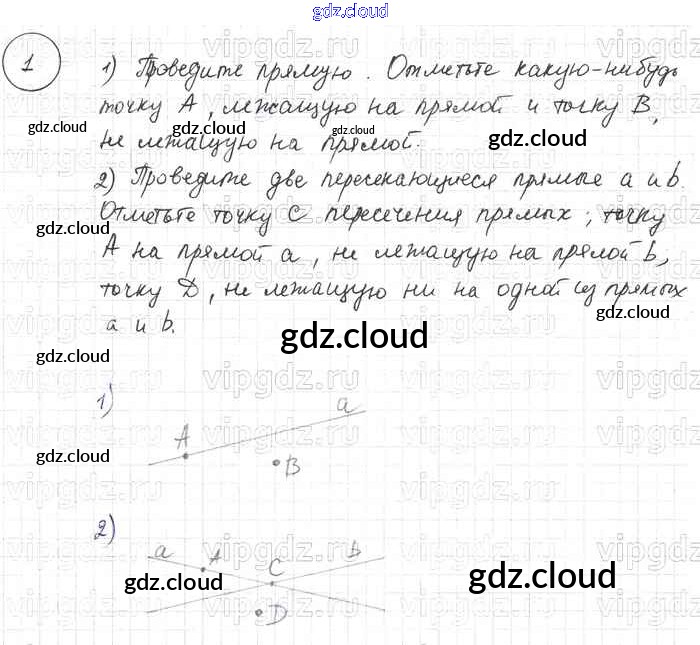 gdz.cloud
1
1) Проведите прямую. Отметьте какую-нибудь
точку A, лежащую на прямой и точку B,
не лежащую на прямой.
2) Проведите две пересекающиеся прямые a и b.
Отметьте точку C пересечения прямых; точку
A на прямой a, не лежащую на прямой b,
точку D, не лежащую ни на одной из прямых
a и b.
gdz.cloud
gdz.cloud
gdz.cloud
gdz.cloud
gdz.cloud
gdz.cloud
gdz.cloud
gdz.cloud
1)
a
A
B
gdz.cloud
2)
a A b
C
D
gdz.cloud
gdz.cloud
vipgdz.ru